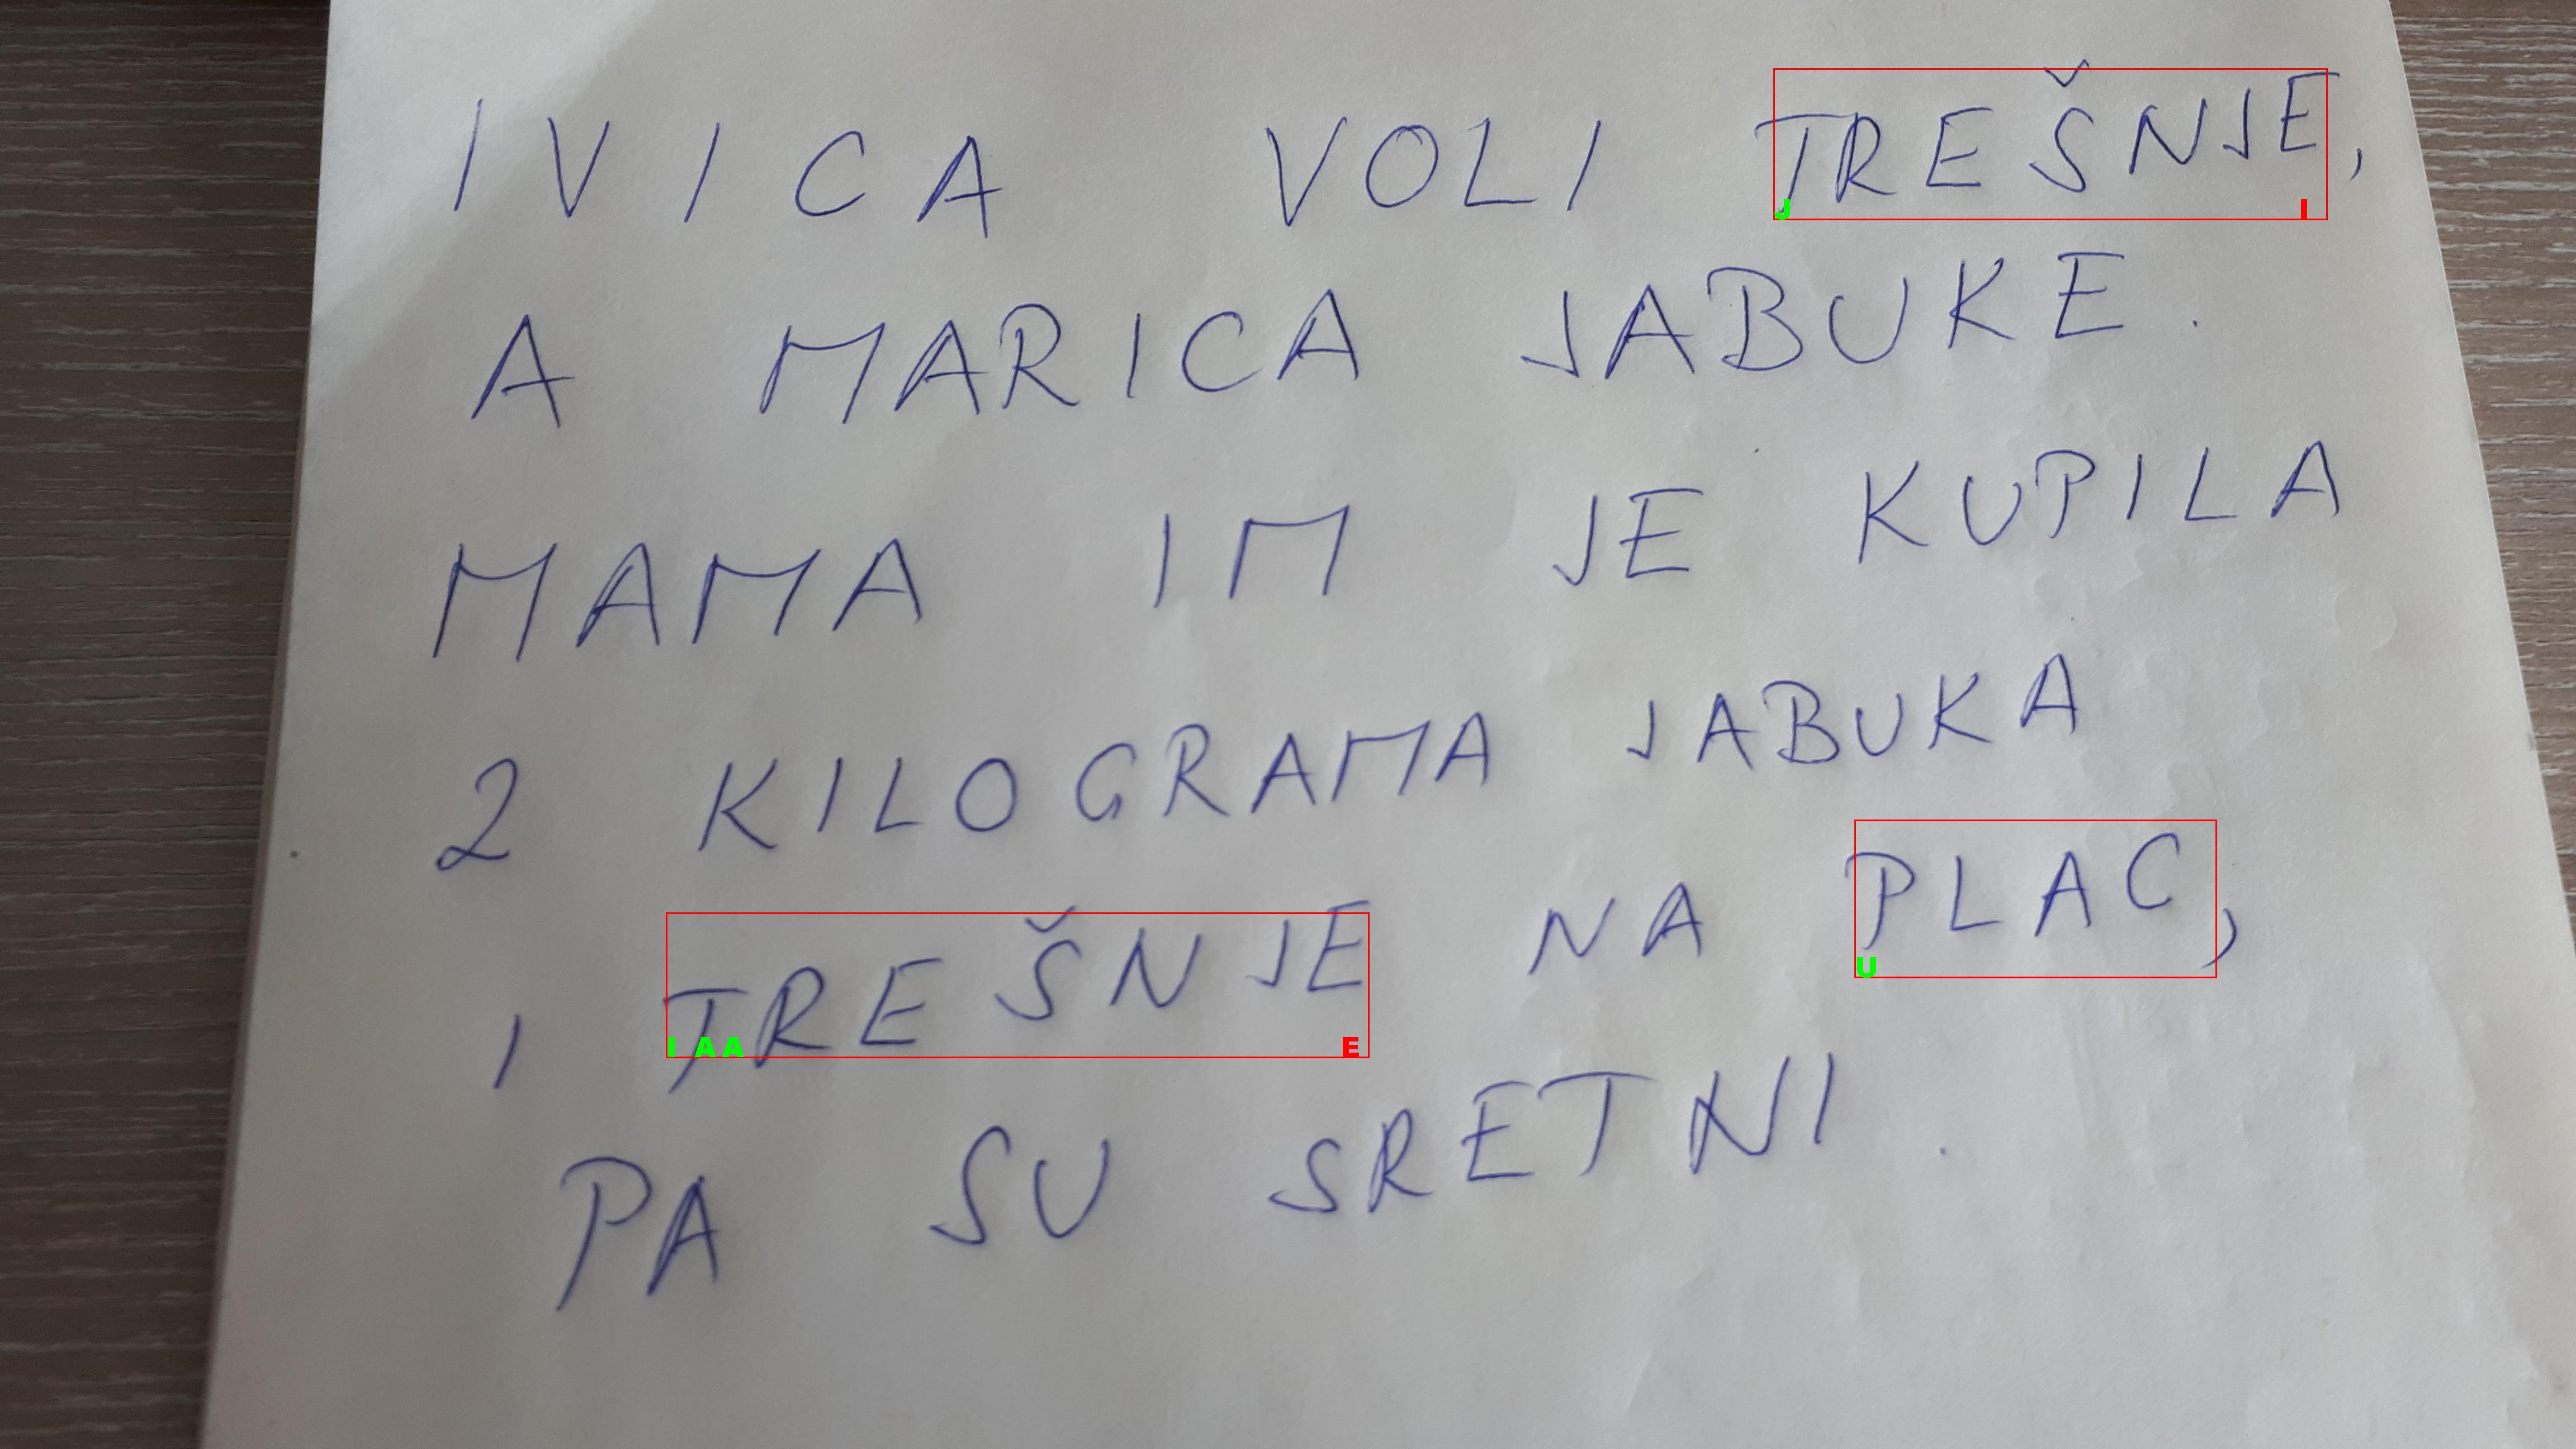 IVICA VOLI TREŠNJE,
A MARICA JABUKE.
MAMA IM JE KUPILA
2 KILOGRAMA JABUKA
1 TREŠNJE NA PLAC,
PA SU SRETNI.
J I
U
I A A E